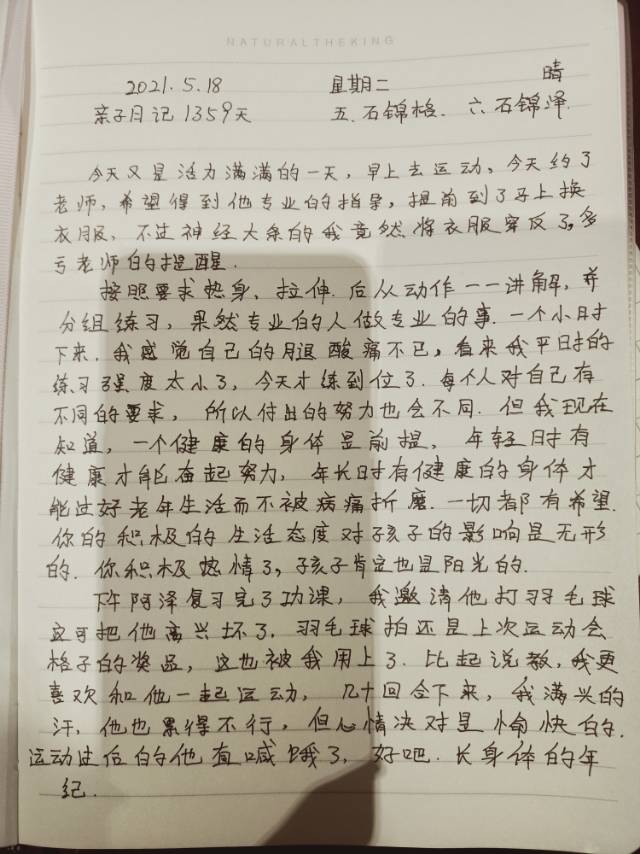 NATURALTHEKING
2021.5.18 星期二 晴
亲子日记1359天 五.石锦格. 六.石锦泽.
今天又是活力满满的一天,早上去运动,今天约了
老师,希望得到他专业的指导,提前到了子上换
衣服,不过神经大条的我竟然将衣服穿反了,多
亏老师的提醒.
按照要求热身、拉伸.后从动作一一讲解,并
分组练习,果然专业的人做专业的事.一个小时
下来.我感觉自己的腿酸痛不已,看来我平时的
练习强度太小了,今天才练到位了.每个人对自己有
不同的要求,所以付出的努力也会不同.但我现在
知道,一个健康的身体是前提,年轻时有
健康才能奋起努力,年长时有健康的身体才
能过好老年生活而不被病痛折磨.一切都有希望.
你的积极的生活态度对孩子的影响是无形
的.你积极热情了,孩子肯定也是阳光的.
下午阿泽复习完了功课,我邀请他打羽毛球
这可把他高兴坏了.羽毛球拍还是上次运动会
格子的奖品,这也被我用上了.比起说教,我更
喜欢和他一起运动,几十回合下来,我满头的
汗,他也累得不行,但心情决对是愉快的.
运动过后的他直喊饿了,好吧.长身体的年
纪.